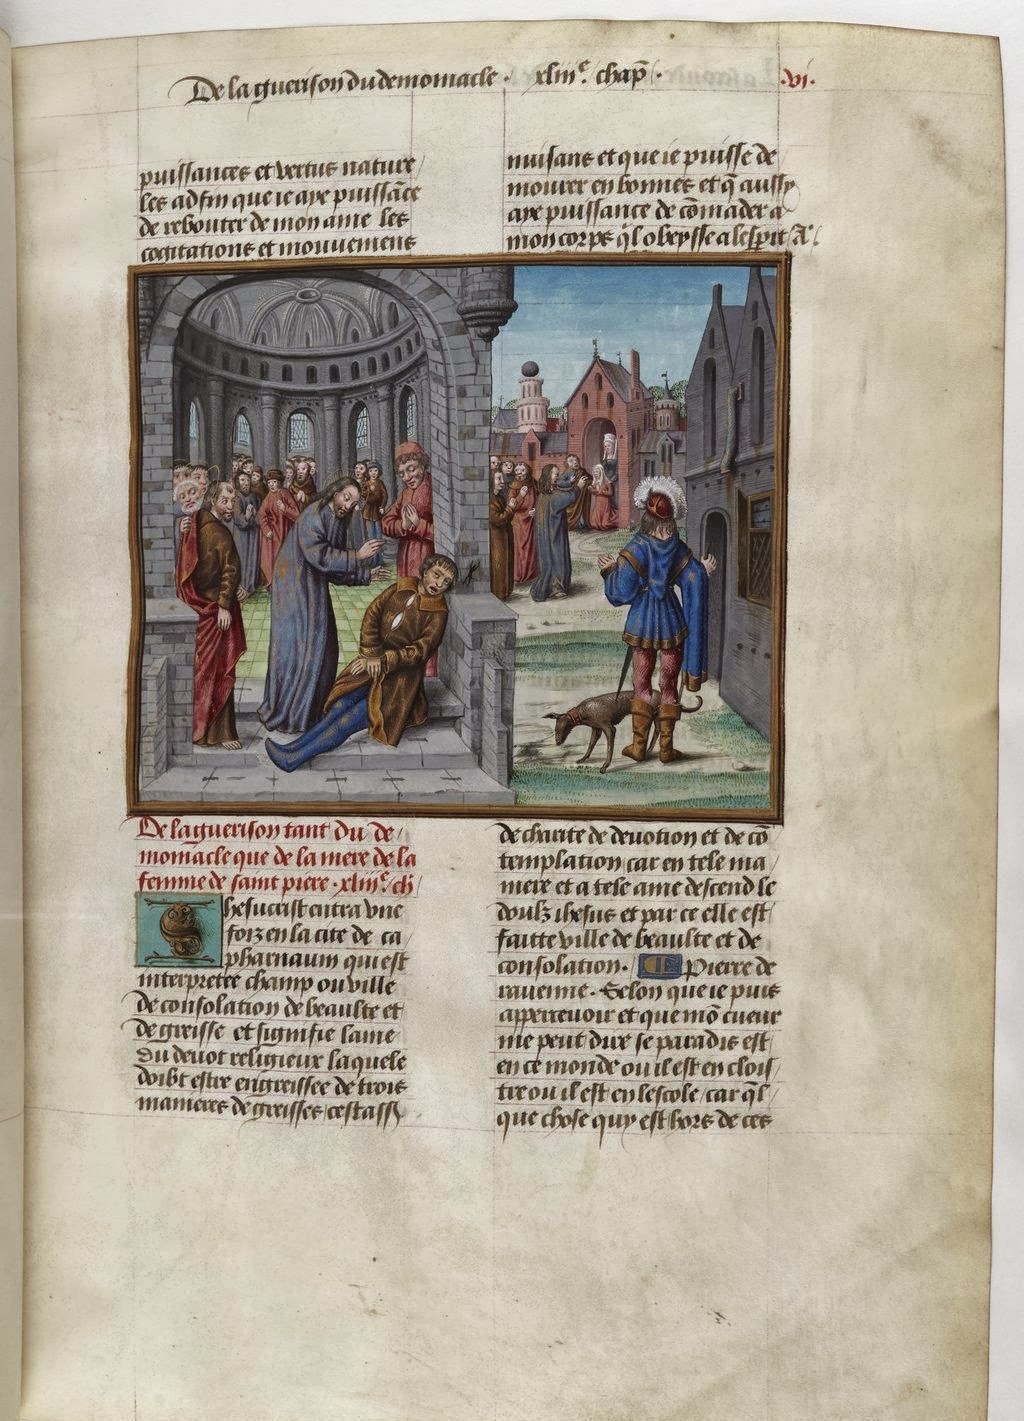 De la guerison du demoniacle · xliiie. chapẽ ·
·vi·
puissances et vertus nature
les adfin que ie aye puissãce
de rebouter de mon ame les
cogitations et mouvemens
nuisans et que ie puisse de
mourer en bonnes et q̃ aussy
aye puissance de cõmader a
mon corps q̃l obeysse a lesperit
De la guerison tant du de
moniacle que de la mere de la
femme de saint piere · xliiie. ch
Ihesucrist entra vne
foiz en la cite de ca
pharnaum qui est
interpretee champ ou ville
de consolation de beaulte et
de gresse et signifie lame
du devot religieux laquele
doibt estre engressee de trois
manieres de gresses cestass
de charite de devotion et de cõ
templation car en tele ma
niere et a tele ame descend le
doulz ihesus et par ce elle est
faitte ville de beaulte et de
consolation. Pierre de
ravenne. Selon que ie puis
appercevoir et que mõ cueur
me peut dire se paradis est
en ce monde ou il est en clois
tre ou il est en lescole car q̃l
que chose quy est hors de ces